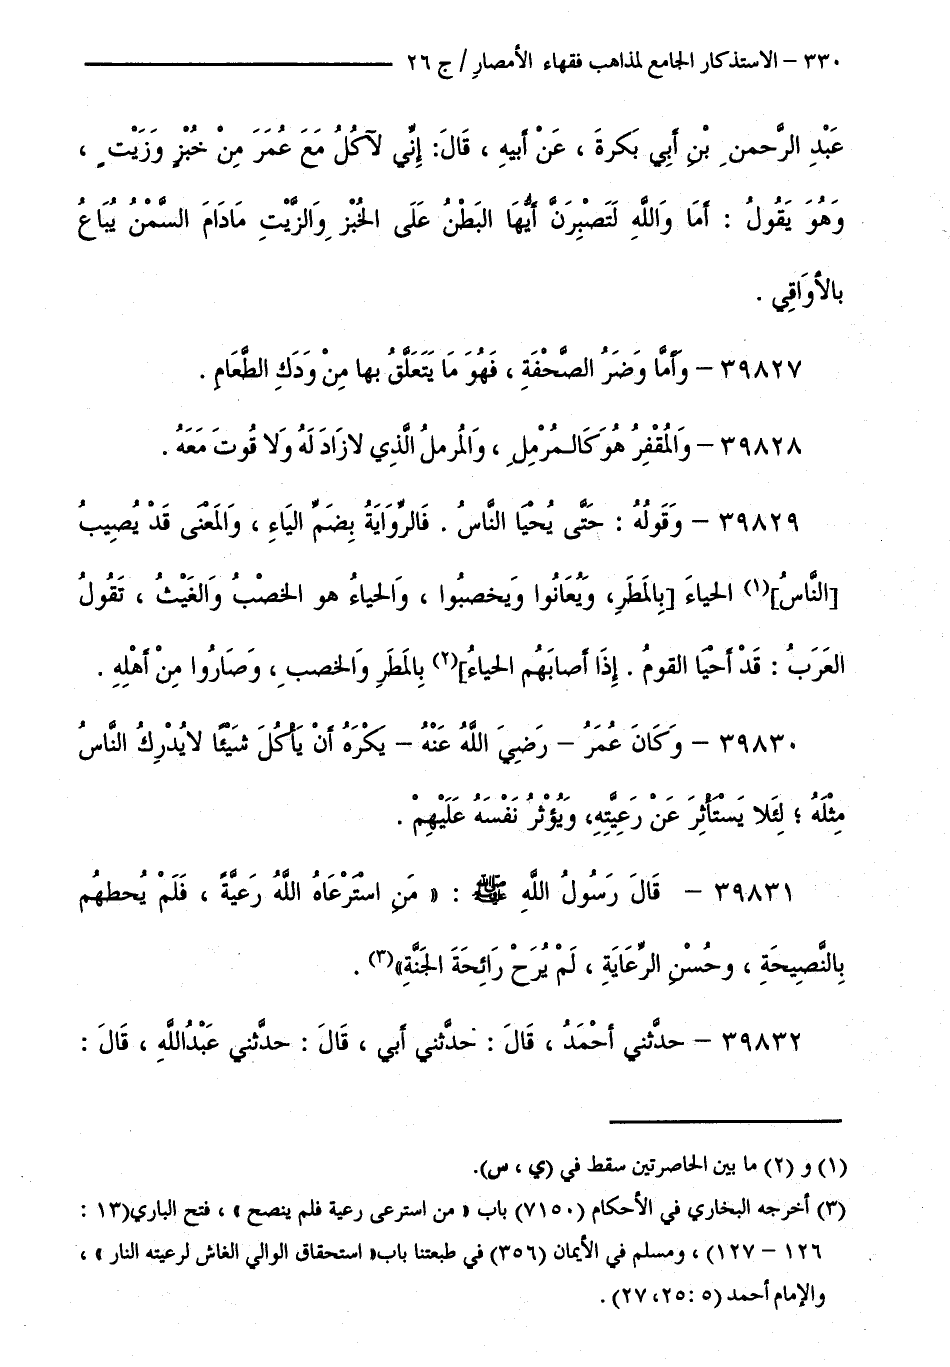 ٣٣٠ – الاستذكار الجامع لمذاهب فقهاء الأمصار / ج ٢٦
عَبْدِ الرَّحمنِ بْنِ أَبِي بَكرةَ ، عَنْ أَبيهِ ، قَالَ: إِنِّي لآكُلُ مَعَ عُمَرَ مِنْ خُبْزٍ وَزَيْتٍ ،
وَهُوَ يَقُولُ : أَمَا وَاللَّهِ لَتَصْبِرَنَّ أَيُّهَا البَطْنُ عَلَى الخُبْزِ وَالزَّيْتِ مَادَامَ السَّمْنُ يُبَاعُ
بالأوَاقِي .
٣٩٨٢٧ – وَأَمَّا وَضَرُ الصَّحْفَةِ ، فَهُوَ مَا يَتَعَلَّقُ بها مِنْ وَدَكِ الطَّعَامِ .
٣٩٨٢٨ – وَالمُقْفِرُ هُوَ كَالمُرْمِلِ ، وَالمُرملُ الَّذِي لا زَادَ لَهُ وَلا قُوتَ مَعَهُ .
٣٩٨٢٩ – وَقَولُهُ : حَتَّى يُحْيَا النَّاسُ . فَالرِّوَايَةُ بِضَمِّ اليَاءِ ، وَالمَعْنَى قَدْ يُصِيبُ
[النَّاسُ](١) الحياءَ [بِالمَطَرِ، وَيُعَانُوا وَيَخصبُوا ، وَالحياءُ هو الخصْبُ وَالغَيْثُ ، تَقُولُ
العَرَبُ : قَدْ أَحْيَا القومُ . إِذَا أَصابَهُم الحياءُ](٢) بِالمَطَرِ وَالخصبِ ، وَصَارُوا مِنْ أَهْلِهِ .
٣٩٨٣٠ – وَكَانَ عُمَرُ – رَضِيَ اللَّهُ عَنْهُ – يَكْرَهُ أَنْ يَأْكُلَ شَيْئًا لا يُدْرِكُ النَّاسُ
مِثْلَهُ ؛ لِئَلا يَسْتَأْثِرَ عَنْ رَعِيَّتِهِ، وَيُؤْثِرُ نَفْسَهُ عَلَيْهِمْ .
٣٩٨٣١ – قَالَ رَسُولُ اللَّهِ ﷺ : « مَنِ اسْتَرْعَاهُ اللَّهُ رَعِيَّةً ، فَلَمْ يُحطهُم
بِالنَّصِيحَةِ ، وحُسْنِ الرِّعَايَةِ ، لَمْ يُرَحْ رَائِحَةَ الجَنَّةِ»(٣) .
٣٩٨٣٢ – حدَّثني أَحْمَدُ ، قَالَ : حَدَّثني أَبي ، قَالَ : حدَّثني عَبْدُاللَّهِ ، قَالَ :
(١) و (٢) ما بين الحاصرتين سقط في (ي ، س).
(٣) أخرجه البخاري في الأحكام (٧١٥٠) باب « من استرعى رعية فلم ينصح » ، فتح الباري(١٣ :
١٢٦ – ١٢٧) ، ومسلم في الأيمان (٣٥٦) في طبعتنا باب« استحقاق الوالي الغاش لرعيته النار » ،
والإمام أحمد (٥ :٢٥، ٢٧) .